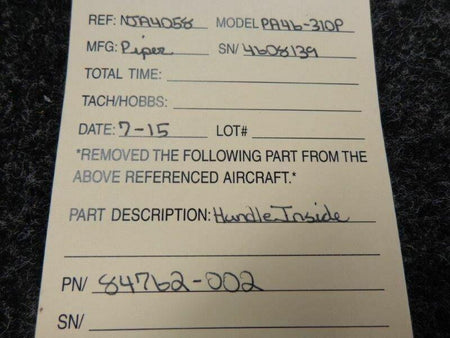 REF: NJA4058 MODEL PA46-310P
MFG: Piper SN/ 4608139
TOTAL TIME:
TACH/HOBBS:
DATE: 7-15 LOT#
*REMOVED THE FOLLOWING PART FROM THE
ABOVE REFERENCED AIRCRAFT.*
PART DESCRIPTION: Handle Inside
PN/ 84762-002
SN/